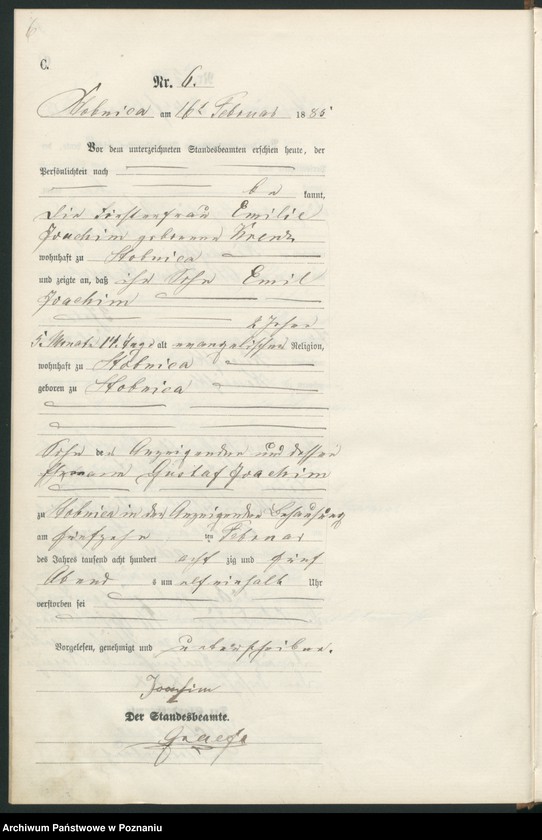 6
C.
Nr. 6.
Stobnica am 16t Februar 1885
Vor dem unterzeichneten Standesbeamten erschien heute, der
Persönlichkeit nach
be kannt,
die Försterfrau Emilie
Joachim geborene
wohnhaft zu Stobnica
und zeigte an, daß ihr Sohn Emil
Joachim
2 Jahr
5. Monate 14. Tage alt evangelischer Religion,
wohnhaft zu Stobnica
geboren zu Stobnica
Sohn der Anzeigenden und dessen
Gustaf Joachim
zu Stobnica in der Anzeigenden Behausung
am fünfzehn ten Februar
des Jahres tausend acht hundert acht zig und fünf
Abend s um elfeinhalb Uhr
verstorben sei
Vorgelesen, genehmigt und unterschrieben.
Joachim
Der Standesbeamte.
Archiwum Państwowe w Poznaniu